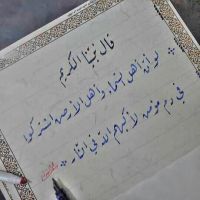 قال نبينا الكريم
لو أن أهل السماء وأهل الأرض اشتركوا
في دم مؤمن لأكبهم الله في النار